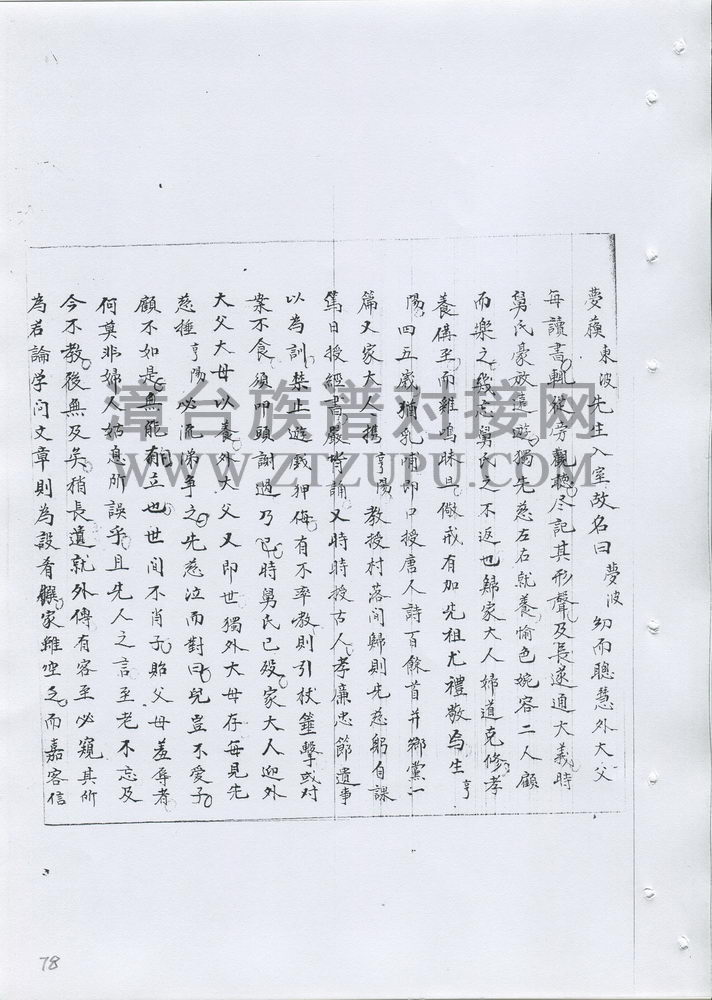 夢蘓東波先生入室故名曰夢波幼而聰慧外大父
每讀書輒從旁觀聽尽記其形聲及長遂通大義時
舅氏豪放遠遊獨先慈左右就養愉色婉容二人顧
而樂之幾忘舅氏之不返也歸家大人婦道克修孝
養備至而雞鳴昧旦儆戒有加先祖尤禮敬焉生亨
陽四五歲猶乳哺即口授唐人詩百餘首并鄉黨一
篇又家大人携亨陽教授村落间歸則先慈躬自課
篤日授經書嚴背誦又時時授古人孝廉忠節遺事
以為訓禁止遊戲狎侮有不率教則引杖箠擊或对
案不食須叩頭謝過乃已時舅氏已殁家大人迎外
大父大母以養外大父又即世獨外大母存每見先
慈捶亨陽必流涕争之先慈泣而對曰兒豈不爱子
顧不如是無能有立也世间不肖子贻父母羞辱者
何莫非婦人姑息所誤乎且先人之言至老不忘及
今不教後無及矣稍長遣就外傅有客至必窺其所
為若論学问文章則為設肴饌家雖空乏而嘉客信
78
漳台族谱对接网
WWW.ZTZUPU.COM